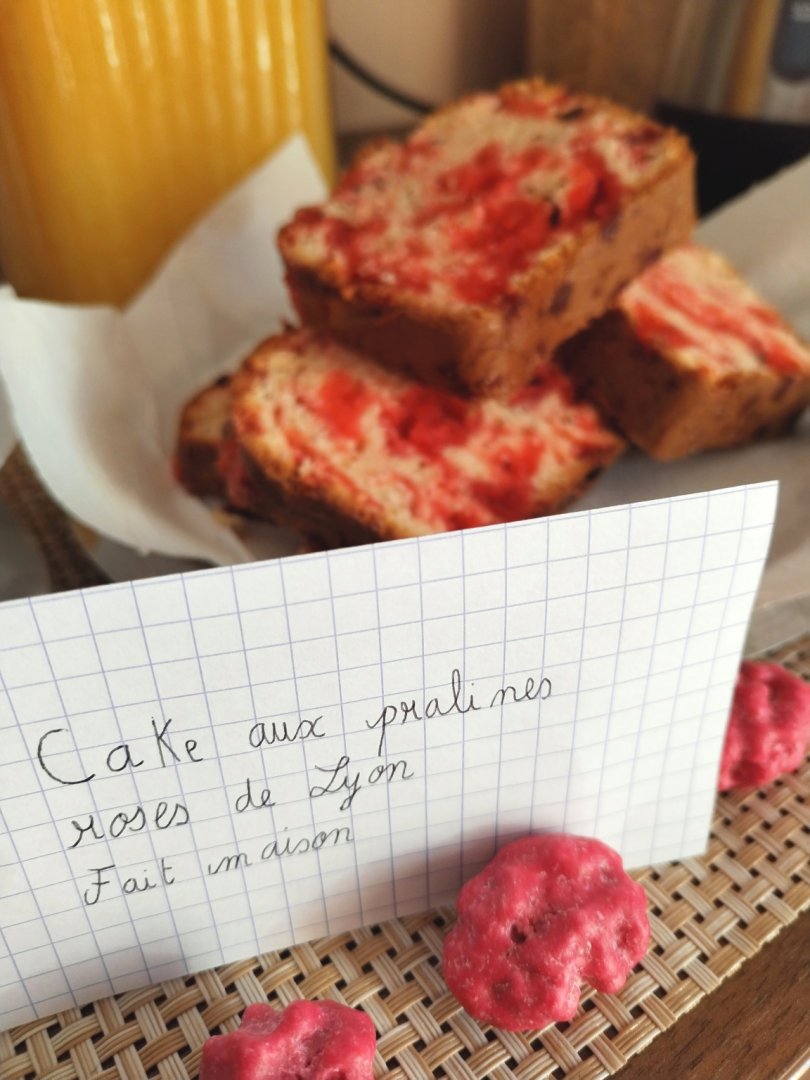 Cake aux pralines
roses de Lyon
Fait maison